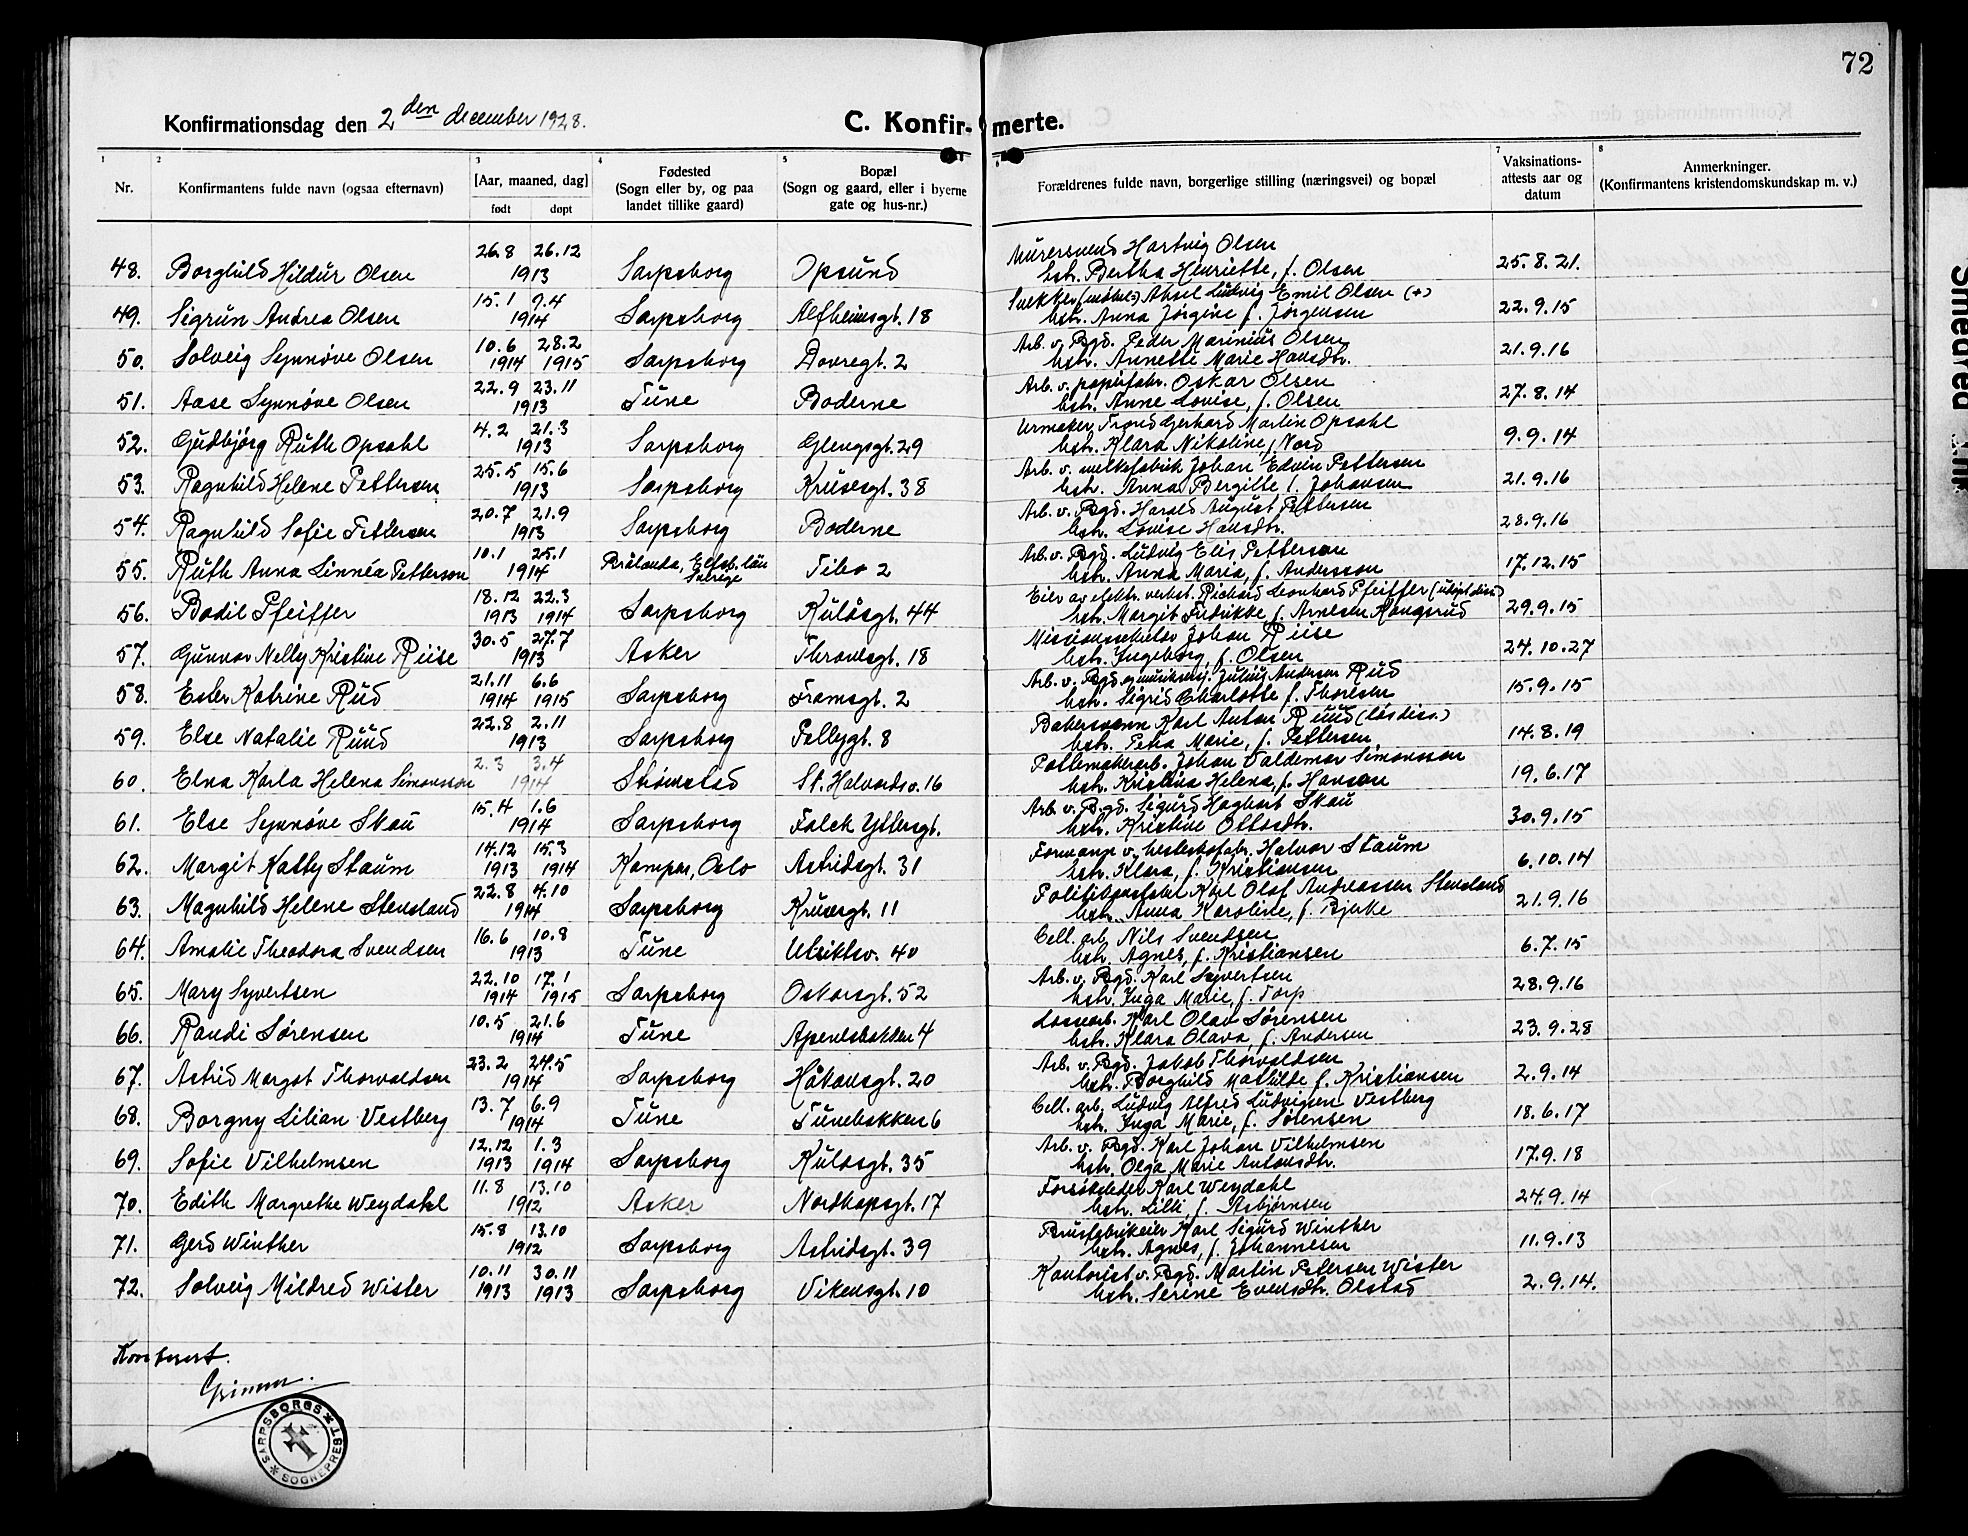 72
Konfirmationsdag den 2den december 1928.
C. Konfirmerte.
1 2 3 4 5 7 8
Nr.
Konfirmantens fulde navn (ogsaa efternavn)
[Aar, maaned, dag]
født døpt
Fødested
(Sogn eller by, og paa
landet tillike gaard)
Bopæl
(Sogn og gaard, eller i byerne
gate og hus-nr.)
Forældrenes fulde navn, borgerlige stilling (næringsvei) og bopæl
Vaksinations-
attests aar og
datum
Anmerkninger.
(Konfirmantens kristendomskundskap m. v.)
48. Borghild Hildur Olsen 26.8 26.12 1913 Sarpsborg Opsund Murersvend Hartvig Olsen
hstr. Bertha Henriette, f. Olsen 25.8.21.
49. Sigrun Andrea Olsen 15.1 9.4 1914 Sarpsborg Alfheimsgt. 18 Snekker (møbel) Aksel Ludvig Emil Olsen (+)
hstr. Anna Jørgine f. Jørgensen 22.9.15
50. Solveig Synnøve Olsen 10.6 1914 28.2 1915 Sarpsborg Dovregt. 2 Arb. v. Bgd. Peder Marinius Olsen
hstr. Annette Marie Hansdtr. 21.9.16
51. Aase Synnøve Olsen 22.9 23.11 1913 Tune Boderne Arb. v. papirfabr. Oskar Olsen
hstr. Anne Lovise, f. Olsen 27.8.14
52. Gudbjørg Ruth Opsahl 4.2 21.3 1913 Sarpsborg Glengsgt. 29 Urmaker Trond Gerhard Martin Opsahl
hstr. Klara Nikoline, f. Nord 9.9.14
53. Ragnhild Helene Pettersen 25.5 15.6 1913 Sarpsborg Krusesgt. 38 Arb. v. melkefabrik Johan Edvin Pettersen
hstr. Anna Bergitte f. Johansen 21.9.16
54. Ragnhild Sofie Pettersen 20.7 21.9 1913 Sarpsborg Boderne Arb. v. Bgd. Harald August Pettersen
hstr. Lovise Hansdtr. 28.9.16
55. Ruth Anna Linnéa Petterson 10.1 25.1 1914 Brålanda, Elfsb. län
Sverige Tibo 2 Arb. v. Bgd. Ludvig Elis Petterson
hstr. Anna Maria, f. Andersson 17.12.15
56. Bodil Pfeiffer 18.12 1913 22.3 1914 Sarpsborg Kulåsgt. 44 Eier av elektr. verkst. Richard Leonhard Pfeiffer
hstr. Margit Fredrikke f. Arnesen Haugsrud 29.9.15
57. Gunvor Nelly Kristine Riise 30.5 27.7 1913 Asker Thranesgt. 18 Missionssekretær Johan Riise
hstr. Ingeborg, f. Olsen 24.10.27
58. Ester Katrine Rud 21.11 1914 6.6 1915 Sarpsborg Framsgt. 2 Arb. v. Bgd. Julius Andersen Rud
hstr. Sigrid Charlotte f. Thoresen 15.9.15
59. Else Natalie Ruud 22.8 2.11 1913 Sarpsborg Follygt. 8 Bakersvenn Karl Anton Ruud
hstr. Petra Marie, f. Pettersen 14.8.19
60. Elna Karla Helena Simonsson 2.3 3.4 1914 Strømstad St. Halvards v. 16 Pottemakerarb. Johan Valdemar Simonsson
hstr. Kristina Helena, f. Hanson 19.6.17
61. Else Synnøve Skau 15.4 1.6 1914 Sarpsborg Falck Yttersgt. Arb. v. Bgd. Sigurd Hagbart Skau
hstr. Kristine Ottosdtr. 30.9.15
62. Margit Katty Staum 14.12 1913 15.3 1914 Kampen, Oslo Astridsgt. 31 Formann v. hesteskofabr. Halvor Staum
hstr. Klara, f. Kristiansen 6.10.14
63. Magnhild Helene Stensland 22.8 4.10 1914 Sarpsborg Krusesgt. 11 Politikonstabel Karl Olaf Andreassen Stensland
hstr. Anna Karoline, f. Bjerke 21.9.16
64. Amalie Theodora Svendsen 16.6 10.8 1913 Tune Utsiktsv. 40 Cell. arb. Nils Svendsen
hstr. Agnes, f. Kristiansen 6.7.15
65. Mary Syvertsen 22.10 1914 17.1 1915 Sarpsborg Oskarsgt. 52 Arb. v. Bgd. Karl Syvertsen
hstr. Inga Marie, f. Torp 28.9.16
66. Randi Sørensen 10.5 21.6 1914 Tune Apenesbakken 4 Lossearb. Karl Olav Sørensen
hstr. Klara Olava, f. Andersen 23.9.28
67. Astrid Margot Thorvaldsen 23.2 24.5 1914 Sarpsborg Håkonsgt. 20 Arb. v. Bgd. Jakob Thorvaldsen
hstr. Borghild Mathilde f. Kristiansen 2.9.14
68. Borgny Lilian Vestberg 13.7 6.9 1914 Tune Tunebakken 6 Cell. arb. Ludvig Alfred Ludvigsen Vestberg
hstr. Inga Marie, f. Sørensen 18.6.17
69. Sofie Vilhelmsen 12.12 1913 1.3 1914 Sarpsborg Kulåsgt. 35 Arb. v. Bgd. Karl Johan Vilhelmsen
hstr. Olga Marie Antonsdtr. 17.9.18
70. Edith Margrethe Weydahl 11.8 13.10 1912 Asker Nordkapsgt. 17 Forsøksleder Karl Weydahl
hstr. Lilli, f. Asbjørnsen 24.9.14
71. Gerd Winther 15.8 13.10 1912 Sarpsborg Astridsgt. 39 Brusfabrikeier Karl Sigurd Winther
hstr. Agnes, f. Johannesen 11.9.13
72. Solveig Mildred Wister 10.11 1913 30.11 1913 Sarpsborg Vikensgt. 10 Kontorist v. Bgd. Martin Petersen Wister
hstr. Serine Evensdtr. Olstad 2.9.14.
Konferert.
Grimm.
SARPSBORGS SOGNEPREST
Smedved